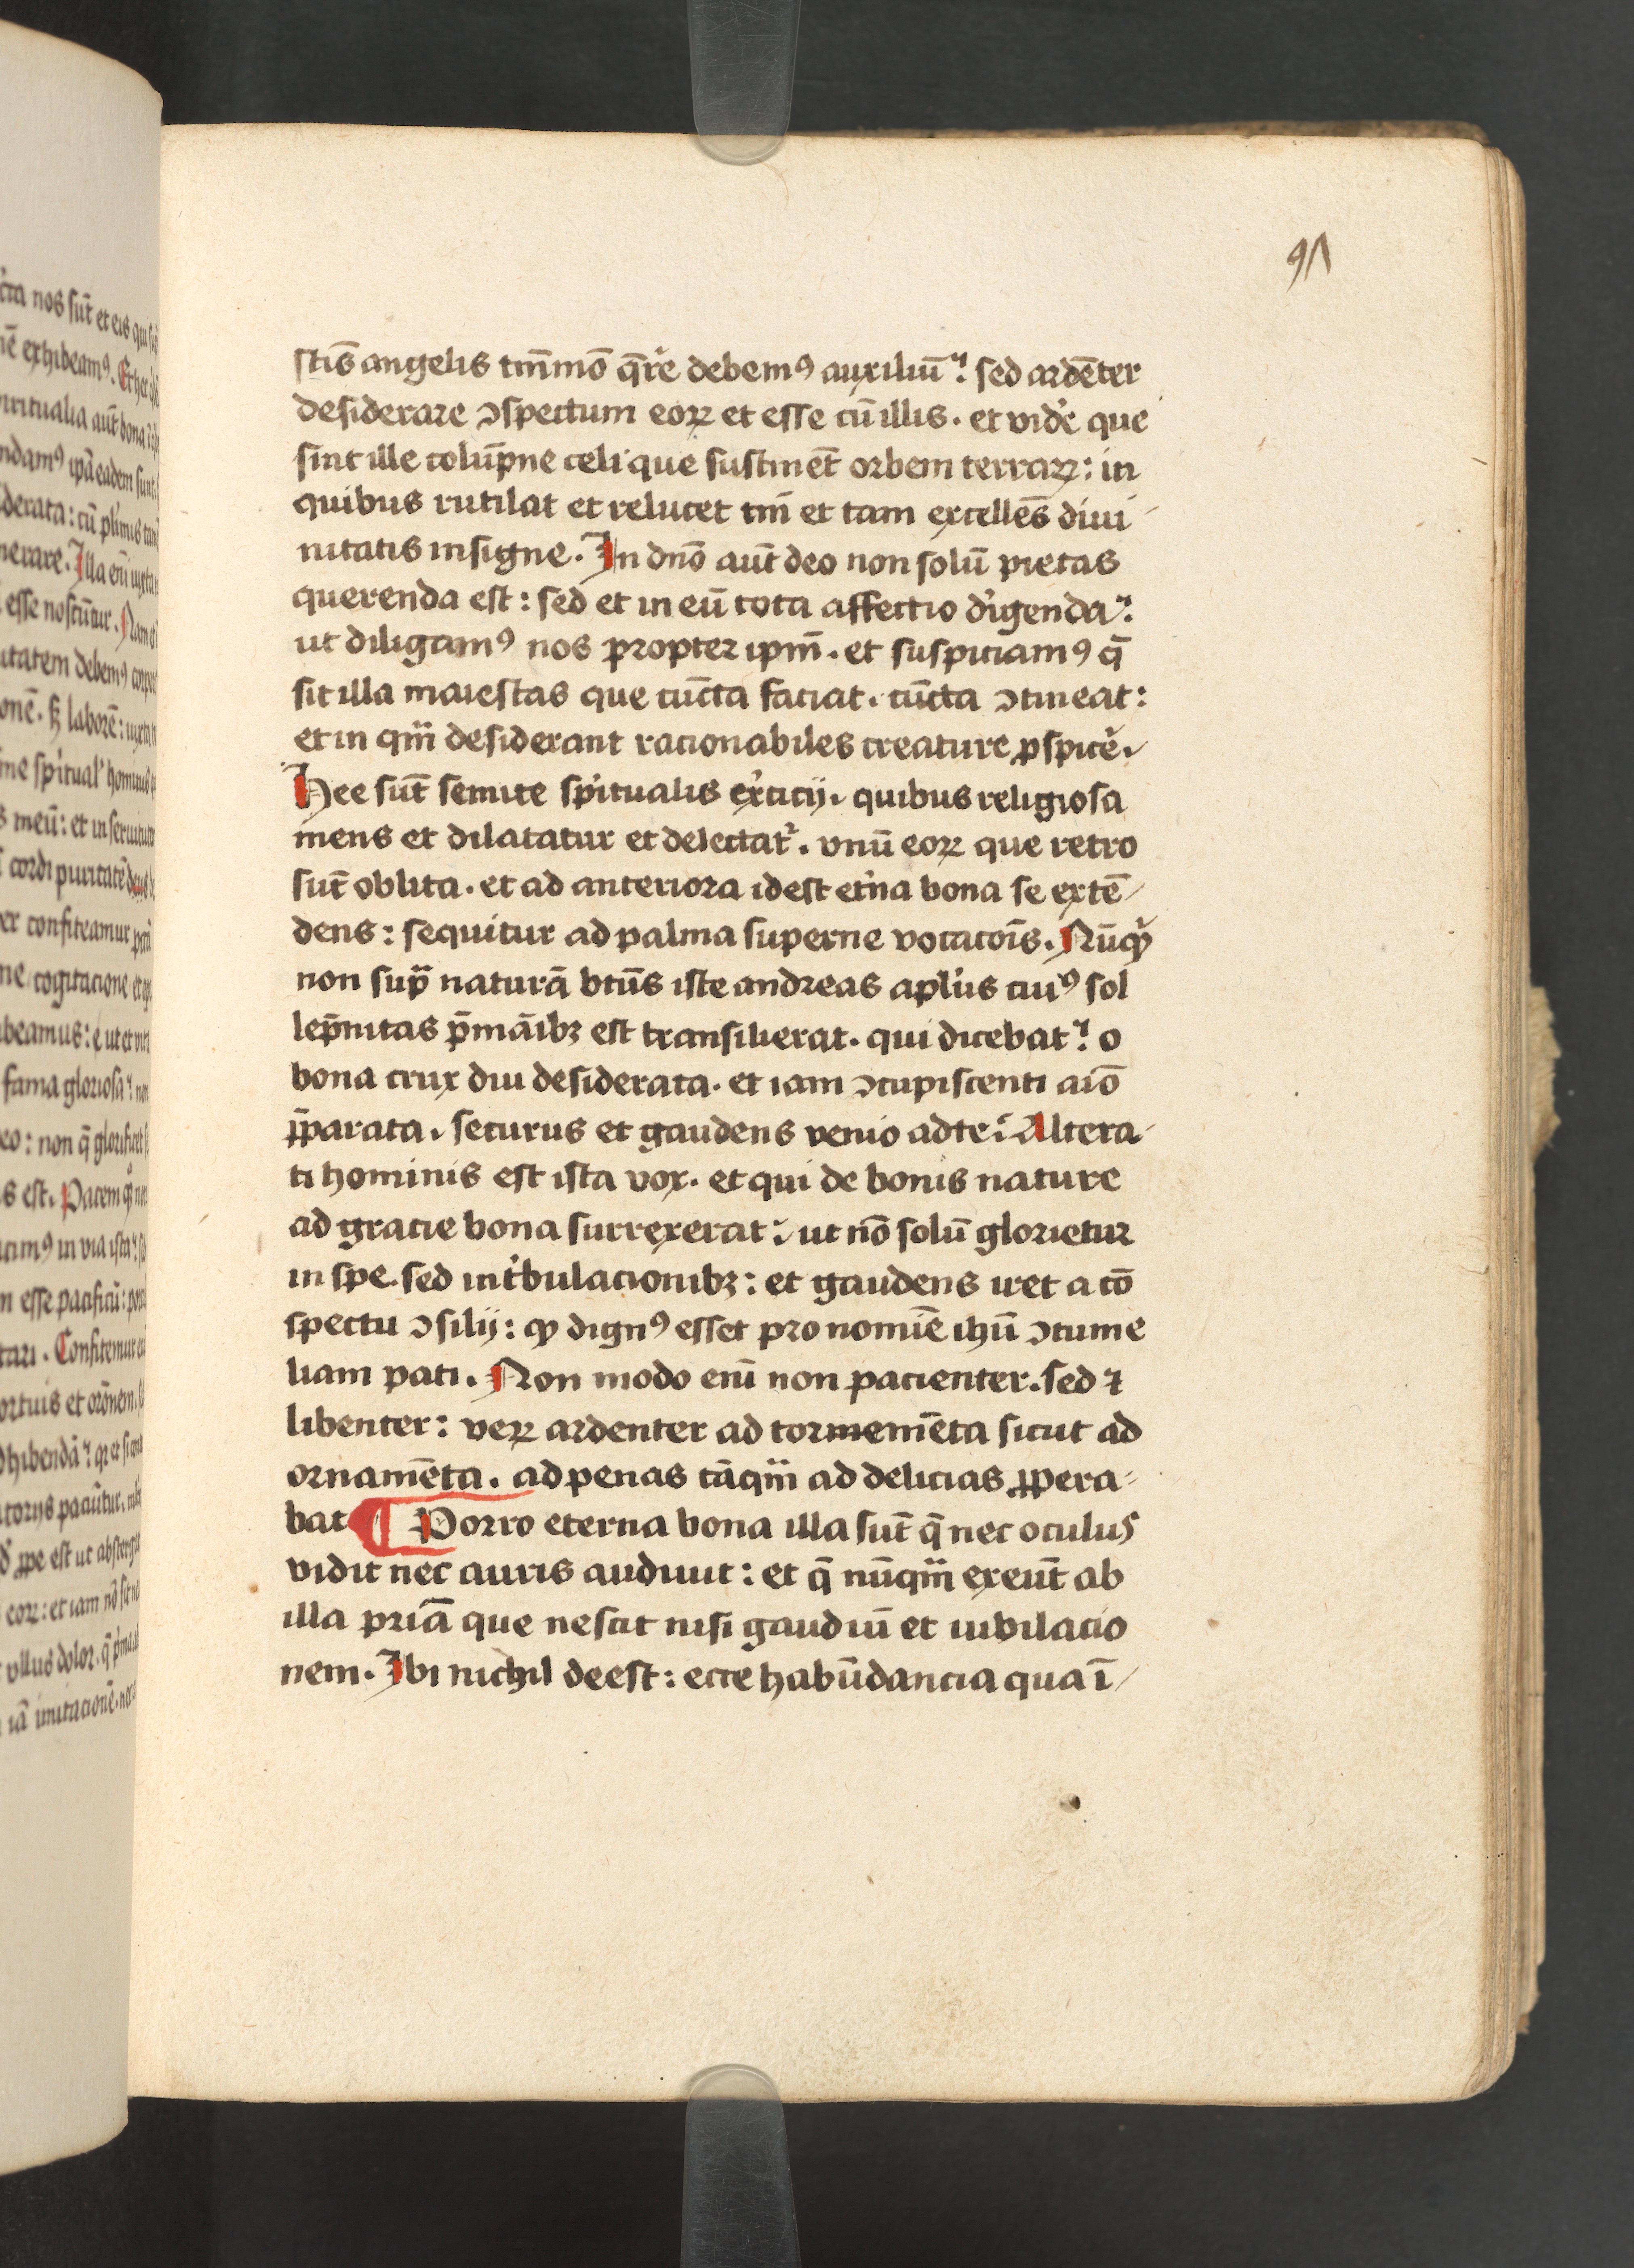 97
stis̄ angelis tm̄mō q̄rͤe debemꝰ auxiliū? sed ardēter
desiderare ↄspectum eoꝝ et esse cū illis. et vidͤe que
sint ille colūpne celi que sustinēt orbem terraꝝ: in
quibus rutilat et relucet tm̄ et tam excellēs diui
nitatis insigne. In dn̄o aūt deo non solū pietas
querenda est: sed et in eū tota affectio dͥigenda?
ut diligamꝰ nos propter ipm̄. et suspiciamꝰ q̄
sit illa maiestas que cūcta faciat. cūcta ↄtineat:
et in qm̄ desiderant racionabiles creature ꝑspicͤe.
Hee sūt semite spūitualis exͤcicij. quibus religiosa
mens et dilatatur et delectatʳ. vnū eoꝝ que retro
sūt oblita. et ad anteriora id est etͤna bona se extē
dens: sequitur ad palma superne vocacōis. Nūqͥd
non supᷓ naturā btūs iste andreas apl̄us cuiꝰ sol
lep̄nitas p̄māibꝫ est transilierat. qui dicebat? o
bona crux diu desiderata. et iam ↄcupiscenti aīo
p̄parata. securus et gaudens venio ad te? Altera
ti hominis est ista vox. et qui de bonis nature
ad gracie bona surrexerat? ut nō solū glorietur
in spe. sed in tͥbulacionibꝫ: et gaudens iret a cō
spectu ↄsilij: ꝙ dignꝰ esset pro nomīe ihū ↄtume
liam pati. Non modo enī non pacienter. sed ⁊
libenter: veꝝ ardenter ad tormemēta sicut ad
ornamēta. ad penas tāqm̄ ad delicias ꝓpera
bat ¶ Porro eterna bona illa sūt q̄ nec oculus
vidit nec auris audiuit: et q̄ nūqm̄ exeūt ab
illa priā que nescit nisi gaudiū et iubilacio
nem. Ibi nichil deest: ecce habūdancia qua ī